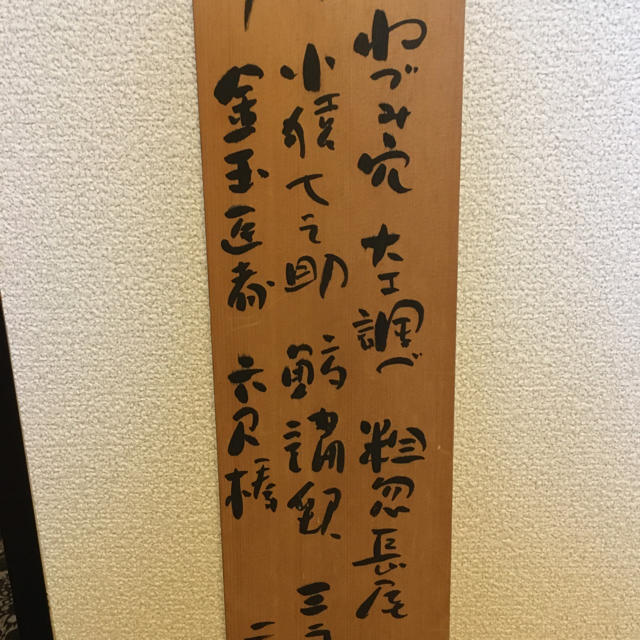 ねづみ穴 大工調べ 粗忽長屋
小猿七之助 鮫講釈 三
金玉医者 六尺棒 二